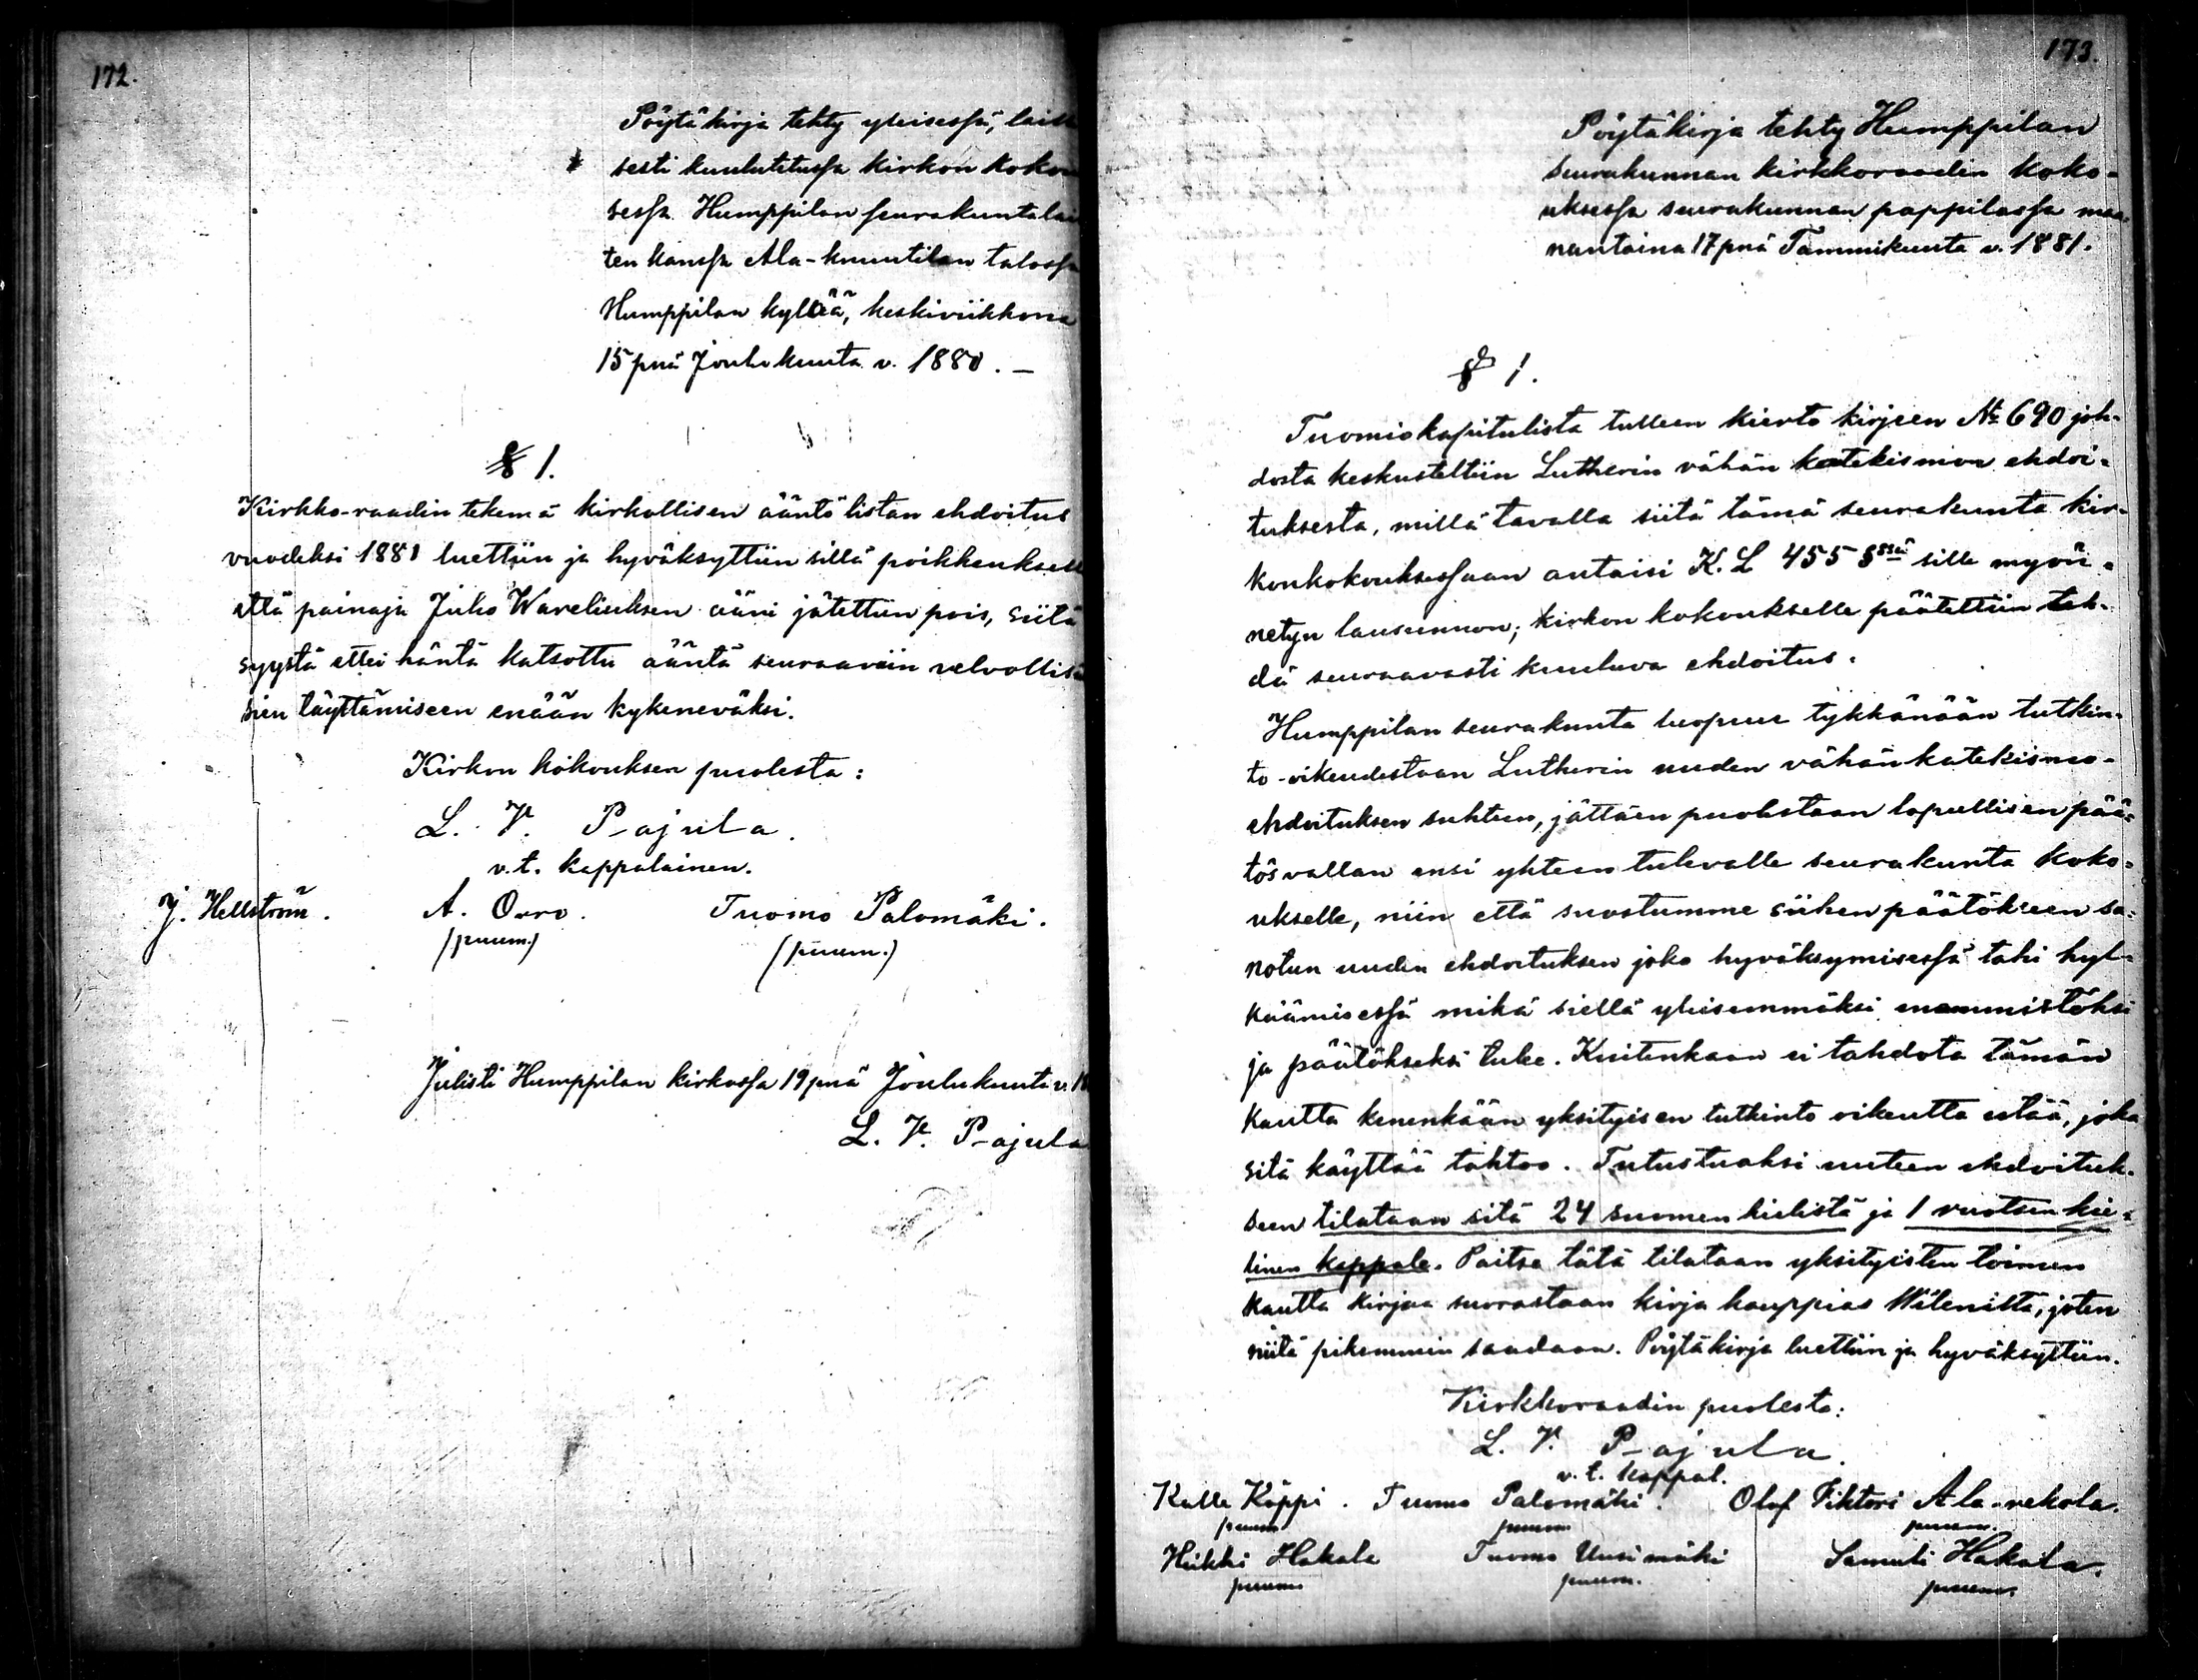 172.
Pöytäkirja tehty yleisessä, lail
sesti kuulutetussa kirkon koko
sessa Humppilan seurakuntalai
ten kanssa Ala-knuutilan talossa
Humppilan kylää, keskiviikkona
15 pnä Joulukuuta v. 1880. —
§ 1.
Kirkko-raadin tekemä kirkollisen ääntölistan ehdoitus
vuodeksi 1881 luettiin ja hyväksyttiin sillä poikkeuksell
että painaja Juho Wareliuksen ääni jätettiin pois, siitä
syystä ettei häntä katsottu ääntä seuraaviin velvollisu
sien täyttämiseen enään kykeneväksi.
Kirkon kokouksen puolesta:
L. V. Pajula.
v.t. kappalainen.
J. Hellström. A. Orro. Tuomo Palomäki.
(puum.) (puum.)
Julisti Humppilan kirkossa 19 pnä Joulukuuta v. 18
L. V. Pajula
173.
Pöytäkirja tehty Humppilan
seurakunnan kirkkoraadin koko-
uksessa seurakunnan pappilassa maa-
nantaina 17 pnä Tammikuuta v. 1881.
§ 1.
Tuomiokapitulista tulleen kierto kirjeen № 690 joh-
dosta keskusteltiin Lutherin vähän katekismon ehdoi-
tuksesta, millä tavalla siitä tämä seurakunta kir-
konkokouksessaan antaisi K. L 455 §ssä sille myön-
netyn lausunnon; kirkon kokoukselle päätettiin teh-
dä seuraavasti kuuluva ehdoitus.
Humppilan seurakunta luopuu tykkänään tutkin-
to-oikeudestaan Lutherin uuden vähän katekismo-
ehdoituksen suhteen, jättäen puolestaan lopullisen pää-
tösvallan ensi yhteen tulevalle seurakunta koko-
ukselle, niin että suostumme siihen päätökseen sa-
notun uuden ehdoituksen joko hyväksymisessä tahi hyl-
käämisessä mikä siellä yleisemmäksi enammistöksi
ja päätökseksi tulee. Kuitenkaan ei tahdota tämän
kautta kenenkään yksityisen tutkinto oikeutta estää, joka
sitä käyttää tahtoo. Tutustuaksi uuteen ehdoituk-
seen tilataan sitä 24 suomenkielistä ja 1 ruotsin kie-
linen kappale. Paitse tätä tilataan yksityisten toimen
kautta kirjaa suorastaan kirja kauppias Wileniltä, joten
niitä pikemmin saadaan. Pöytäkirja luettiin ja hyväksyttiin.
Kirkkoraadin puolesta:
L. V. Pajula.
v. t. kappal.
Kalle Köppi. Tuomo Palomäki. Olof Viktori Ala-nekola.
puum puum puum.
Heikki Hakala Tuomo Uusimäki Samuli Hakala.
puum puum. puum.